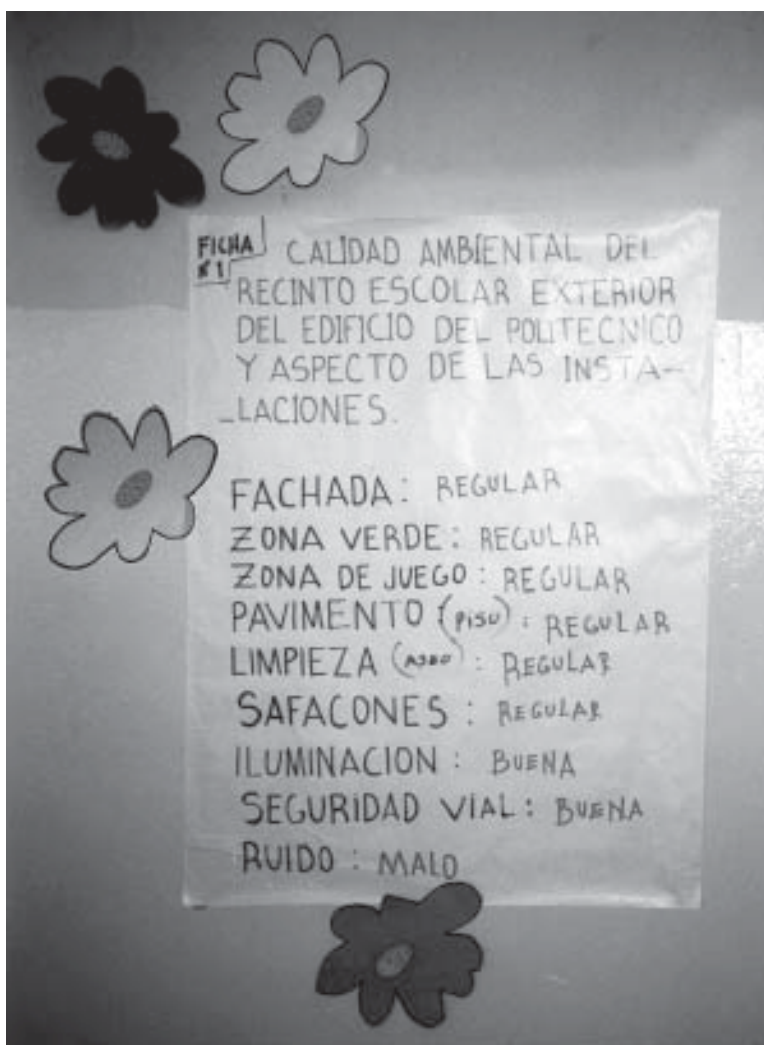 FICHA
Nº1
CALIDAD AMBIENTAL DEL
RECINTO ESCOLAR EXTERIOR
DEL EDIFICIO DEL POLITECNICO
Y ASPECTO DE LAS INSTA-
-LACIONES.
FACHADA: REGULAR
ZONA VERDE: REGULAR
ZONA DE JUEGO: REGULAR
PAVIMENTO (PISO): REGULAR
LIMPIEZA (ASEO): REGULAR
SAFACONES: REGULAR
ILUMINACION: BUENA
SEGURIDAD VIAL: BUENA
RUIDO: MALO